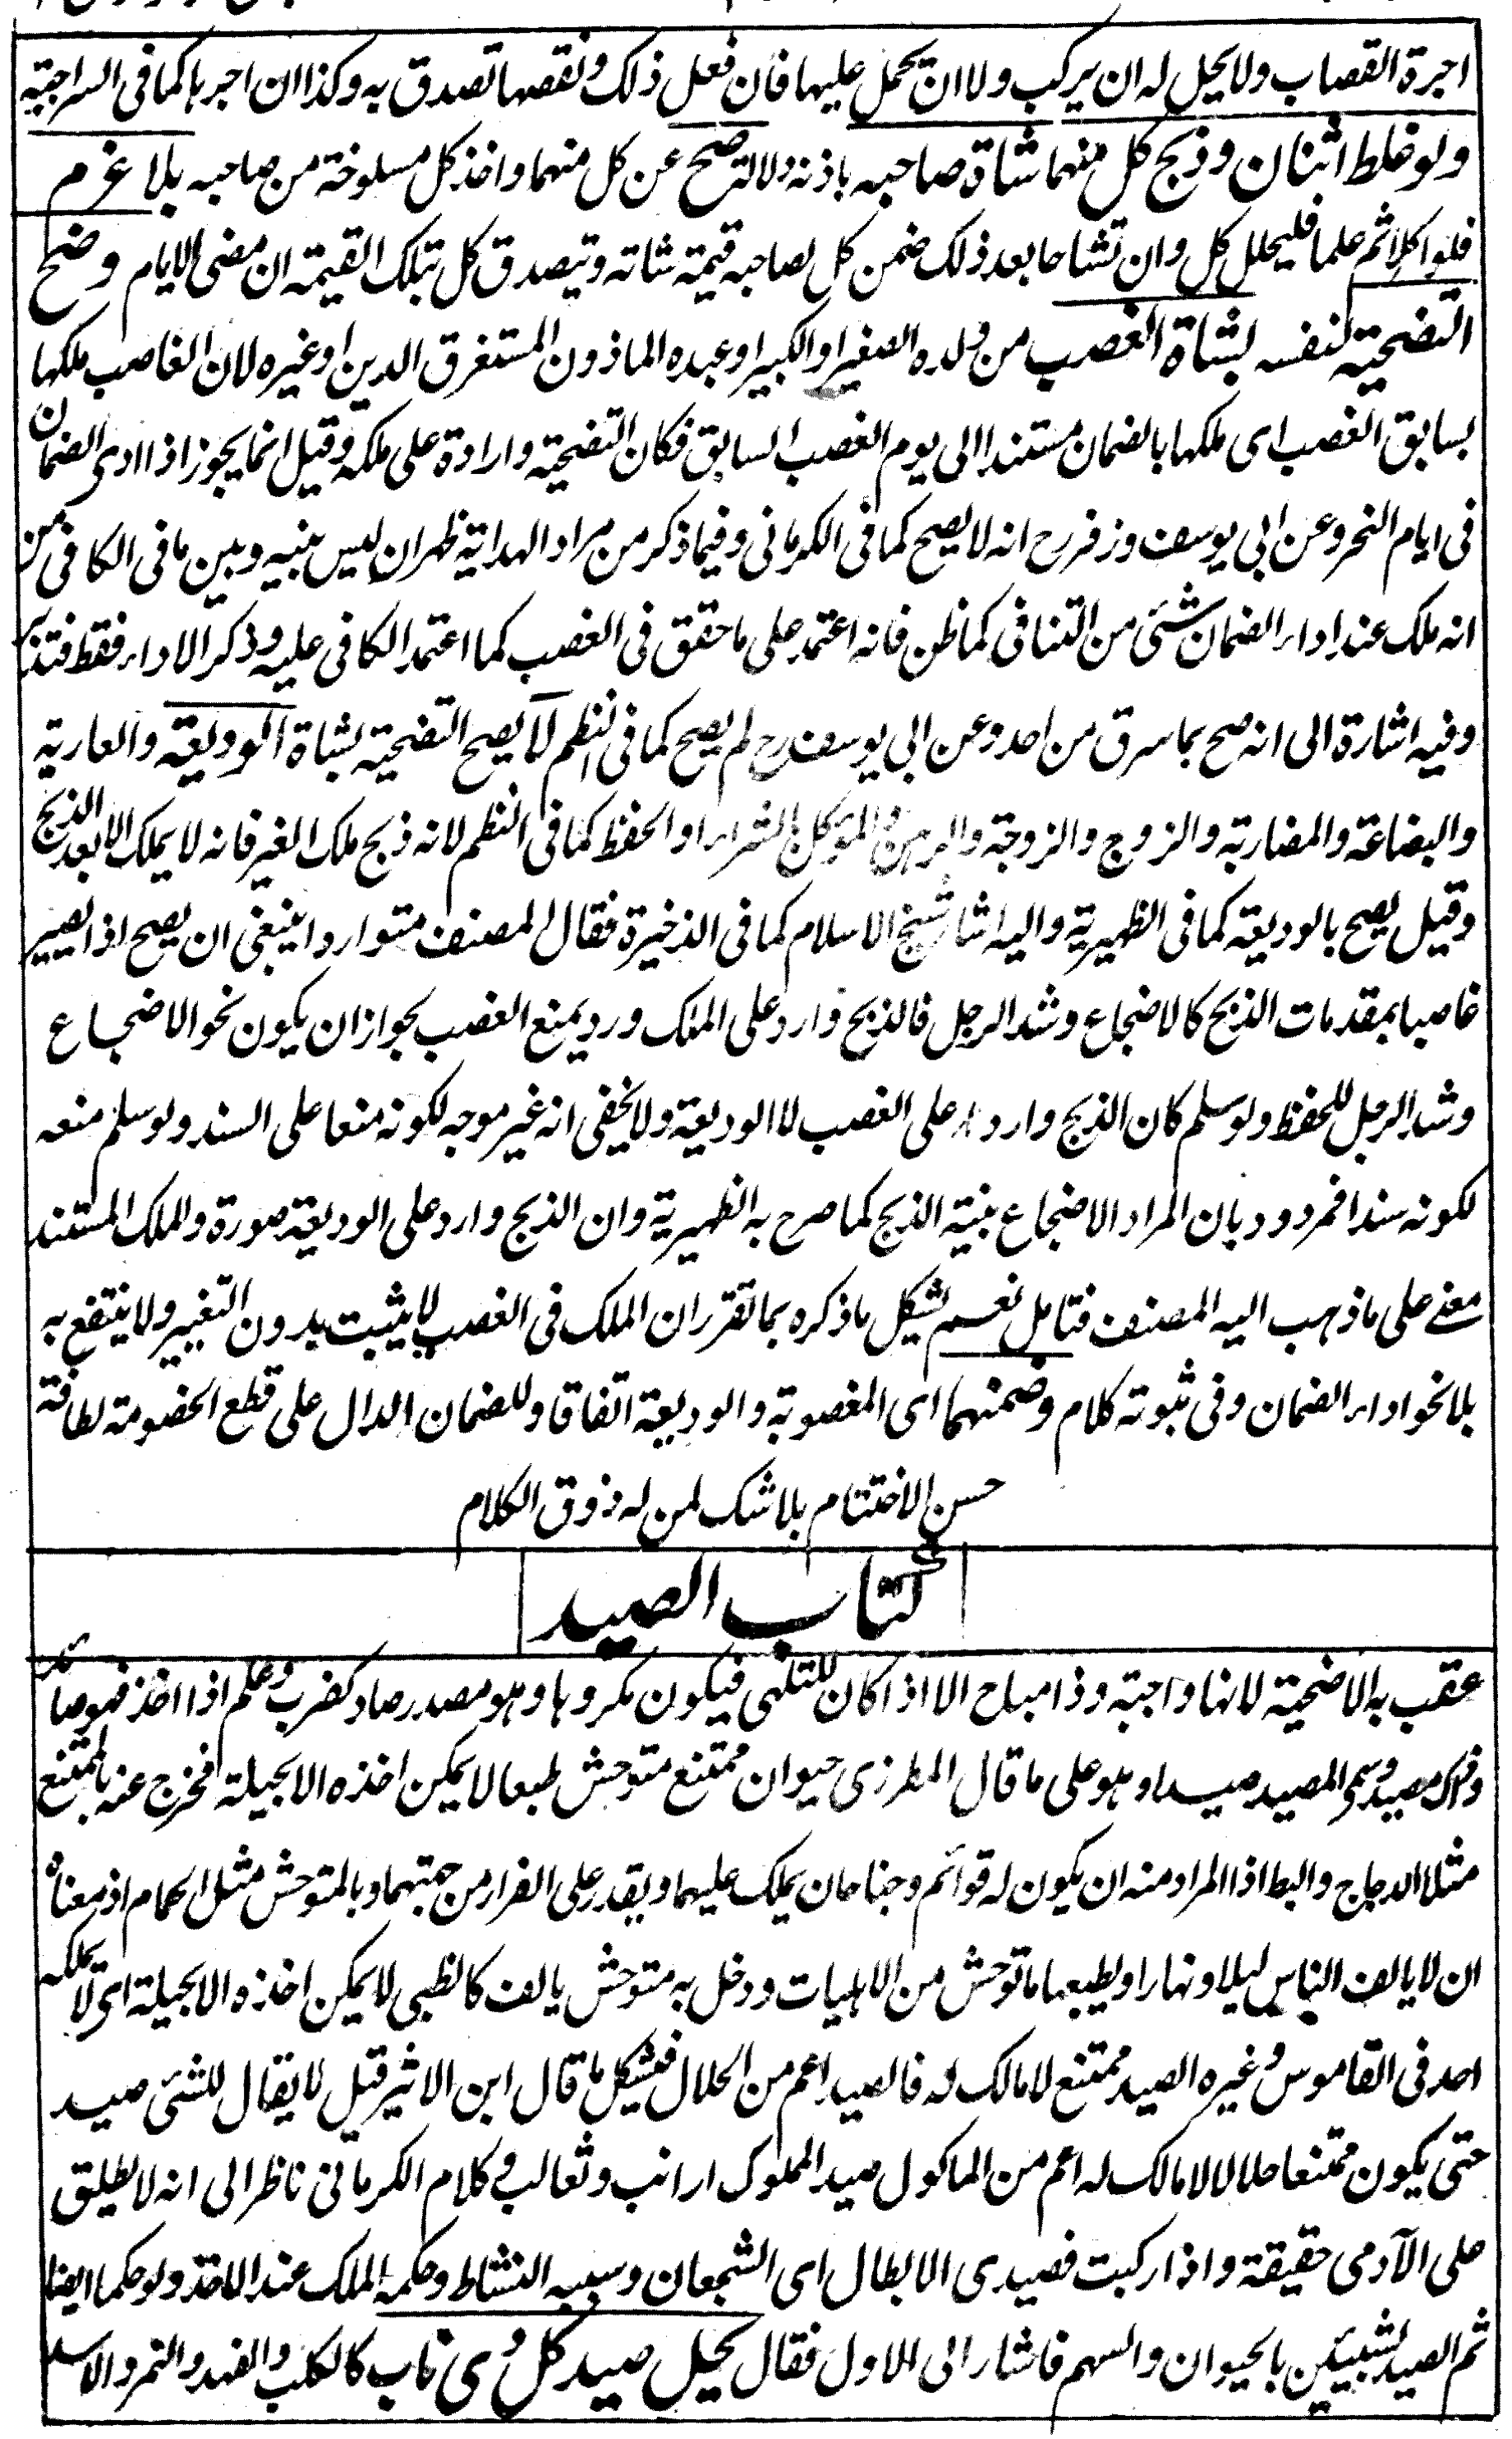 اجرة القصاب ولا يحل له ان يركب ولا ان يحمل عليها فان فعل ذلك ونقصها تصدق به وكذا ان اجرها كما فى السراجية
ولو غلط اثنان وذبح كل منهما شاة صاحبه باذنه دلالة صح عن كل منهما واخذ كل مسلوخة من صاحبه بلا غرم
فلو اكلا ثم علما فليحلل كل وان تشاحا بعد ذلك ضمن كل لصاحبه قيمة شاته وتيصدق كل بتلك القيمة ان مضى الايام وصح
التضحية لنفسه بشاة الغصب من ولده الصغير او الكبير او عبده الماذون المستغرق الدين او غيره لان الغاصب ملكها
بسابق الغصب اى ملكها بالضمان مستندا الى يوم الغصب السابق فكان التضحية واردة على ملكه وقيل انما يجوز اذا ادى الضمان
فى ايام النحر وعن ابى يوسف وزفر رح انه لا يصح كما فى الكرمانى وفيما ذكر من مراد الهداية ظهر ان ليس بينه وبين ما فى الكافى من
انه ملك عند اداء الضمان شئى من التنافى كما ظن فانه اعتمد على ما حقق فى الغصب كما اعتمد الكافى عليه وذكر الاداء فقط فتذكر
وفيه اشارة الى انه صح بما سرق من احد وعن ابى يوسف رح لم يصح كما فى النظم لا يصح التضحية بشاة الوديعة والعارية
والبضاعة والمضاربة والزوج والزوجة والرهن والموكل بالشراء او الحفظ كما فى النظم لانه ذبح ملك الغير فانه لا يملك الا بعد الذبح
وقيل يصح بالوديعة كما فى الظهيرية واليه اشار شيخ الاسلام كما فى الذخيرة فقال المصنف متواردا ينبغى ان يصح اذ يصير
غاصبا بمقدمات الذبح كالاضجاع وشد الرجل فالذبح وارد على الملك ورد بمنع الغصب بجواز ان يكون نحو الاضجاع
وشد الرجل للحفظ ولو سلم كان الذبح واردا على الغصب لا الوديعة ولا يخفى انه غير موجه لكونه منعا على السند ولو سلم منعه
لكونه سندا فمردود بان المراد الاضجاع بنية الذبح كما صرح به الظهيرية وان الذبح وارد على الوديعة صورة والملك المستند
معنى على ما ذهب اليه المصنف فتامل نعم يشكل ما ذكره بما تقرر ان الملك فى الغصب لا يثبت بدون التغيير ولا ينتفع به
بلا نحو اداء الضمان وفى ثبوته كلام وضمنهما اى المغصوبة والوديعة اتفاقا وللضمان الدال على قطع الخصومة لطافة
حسن الاختتام بلا شك لمن له ذوق الكلام
كتاب الصيد
عقب به الاضحية لانها واجبة وذا مباح الا اذا كان للتلهى فيكون مكروها وهو مصدر صاد كضرب وعلم اذا اخذ فهو صائد
وذاك مصيد وسمى المصيد صيدا وهو على ما قال المطرزى حيوان ممتنع متوحش طبعا لا يمكن اخذه الا بحيلة فخرج عنه بالممتنع
مثل الدجاج والبط اذ المراد منه ان يكون له قوائم وجناحان يملك عليهما ويقدر على الفرار من جهتهما وبالمتوحش مثل الحمام اذ معناه
ان لا يالف الناس ليلا ونهارا وبطبعها ما توحش من الاهليات ودخل به متوحش يالف كالظبى لا يمكن اخذه الا بحيلة اى لا يملكه
احد فى القاموس وغيره الصيد ممتنع لا مالك له فالصيد اعم من الحلال فيشكل ما قال ابن الاثير قيل لا يقال للشئى صيد
حتى يكون ممتنعا حلالا لا مالك له اعم من الماكول صيد الملوك ارانب وثعالب وكلام الكرمانى ناظر الى انه لا يطلق
على الآدمى حقيقة واذا ركبت فصيدى الابطال اى الشجعان وسببه النشاط وحكمه الملك عند الاخذ ولو حكما ايضا
ثم الصيد بشيئين بالحيوان والسهم فاشار الى الاول فقال يحل صيد كل ذى ناب كالكلب والفهد والنمر والاسد